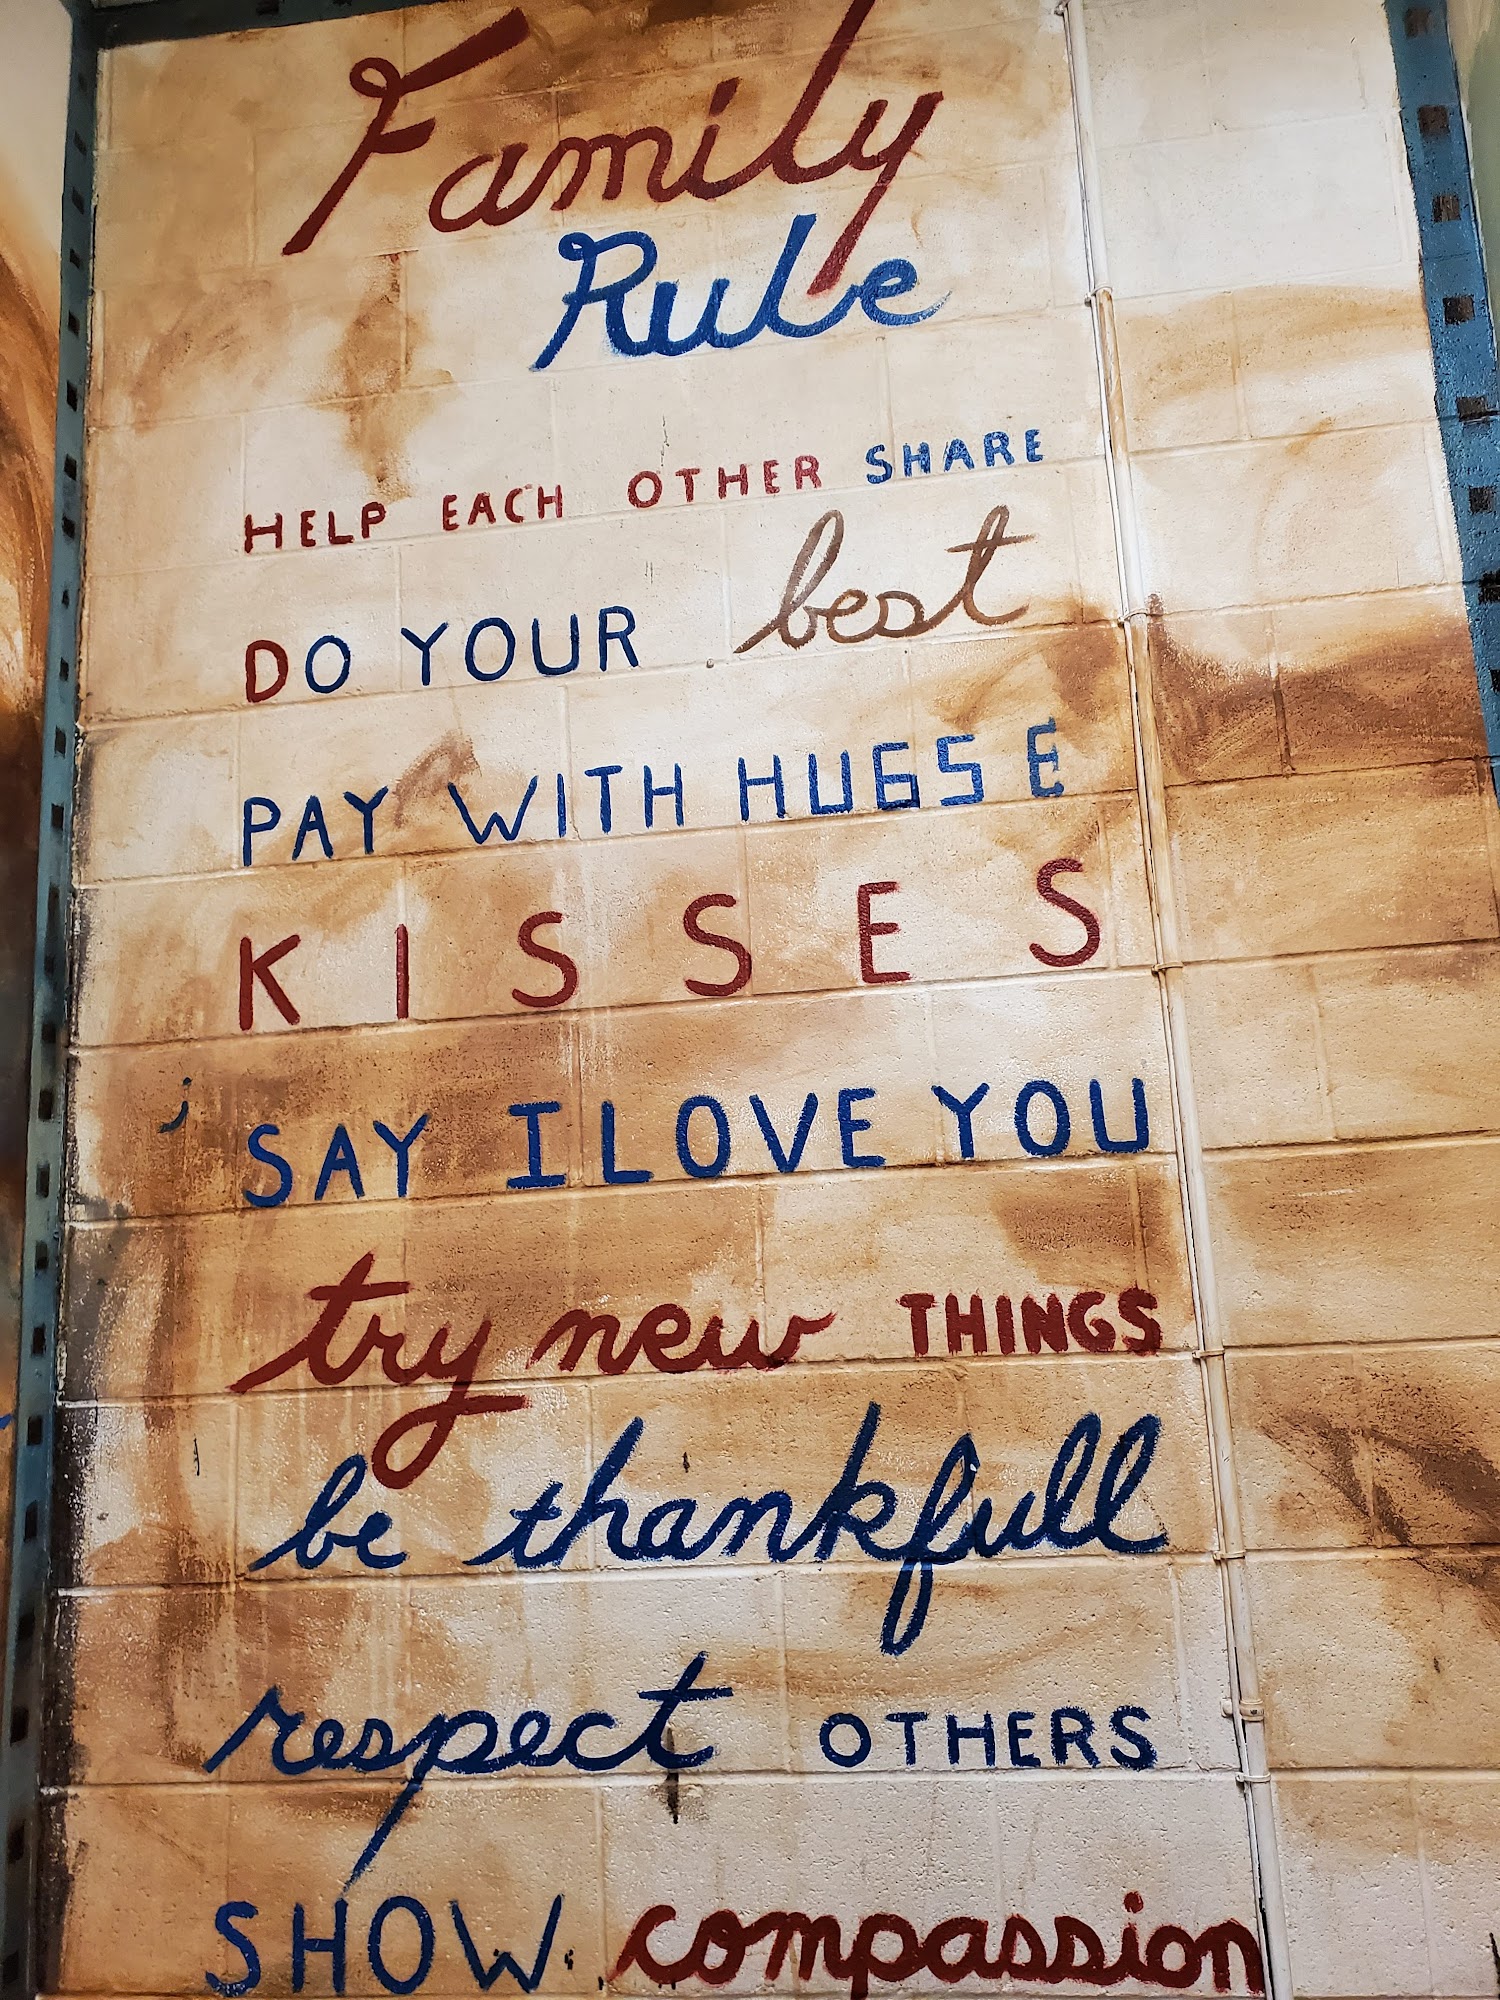 Family
Rule
HELP EACH OTHER SHARE
DO YOUR best
PAY WITH HUGS E
KISSES
SAY I LOVE YOU
try new THINGS
be thankfull
respect OTHERS
SHOW compassion